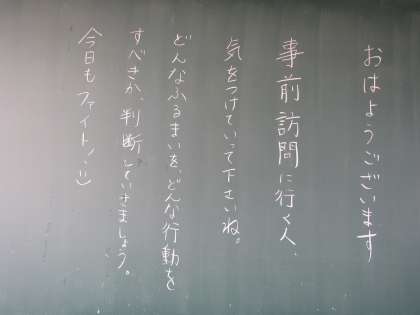 おはようございます
事前訪問に行く人、
気をつけていって下さいね。
どんなふるまいを、どんな行動を
すべきか、判断していきましょう。
今日もファイトン :)